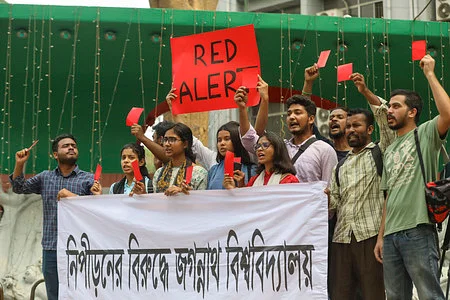 RED
ALERT
নিপীড়নের বিরুদ্ধে জগন্নাথ বিশ্ববিদ্যালয়